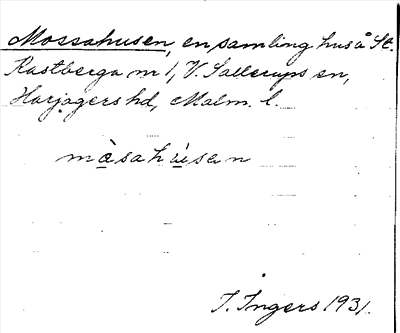 Mossahusen, en samling hus å St.
Rastberga nr 1, V. Sallerups sn,
Harjagers hd, Malm. l.
mòsahùsen
I. Ingers 1931.